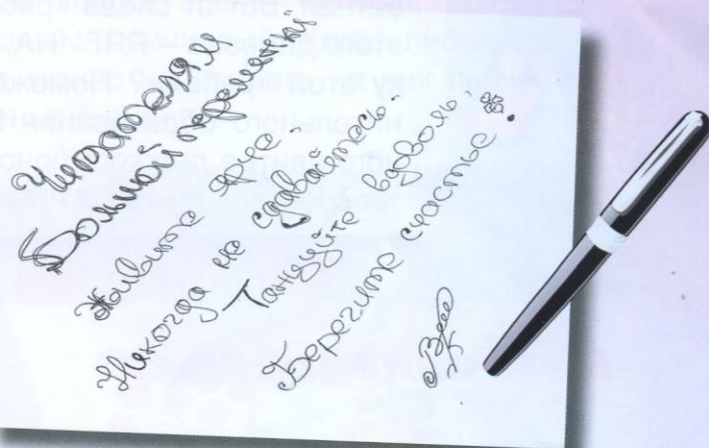 Читателям
„Большой переменной"
Живите ярче.
Никогда не сдавайтесь.
Танцуйте вдоволь.
Берегите счастье.